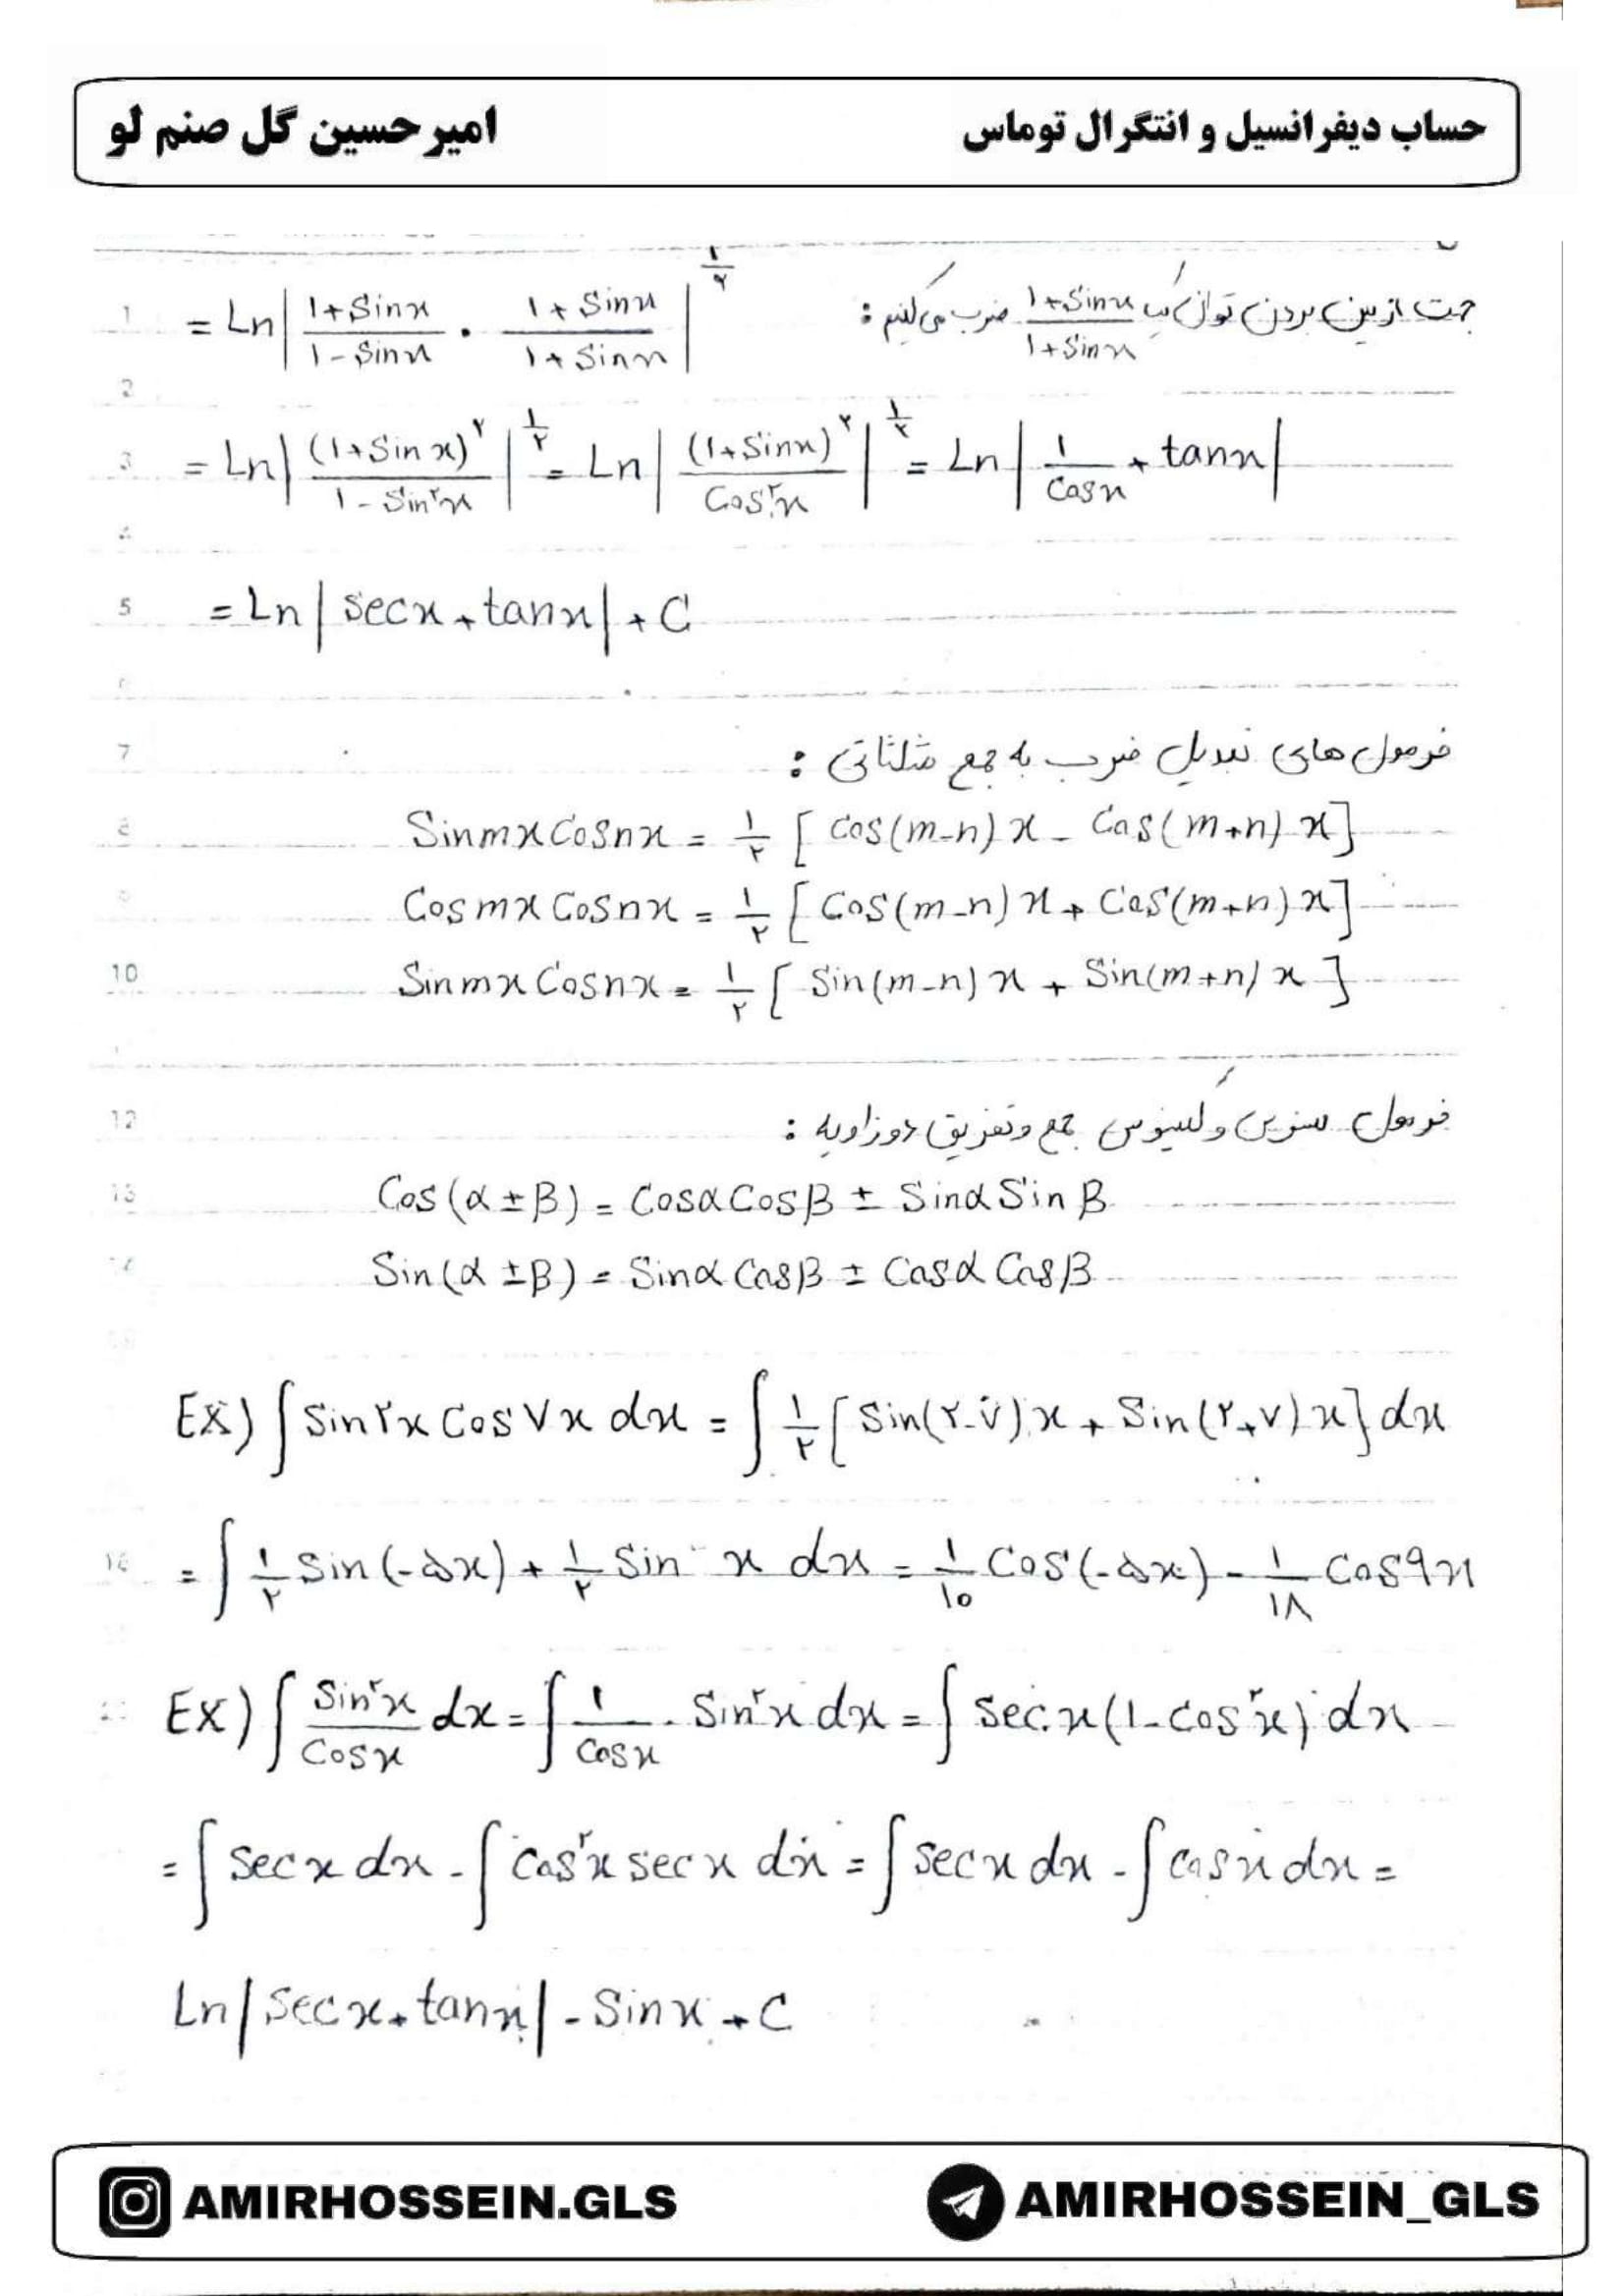 حساب دیفرانسیل و انتگرال توماس امیرحسین گل صنم لو
جهت از بین بردن توان یک (1+Sinx)/(1+Sinx) ضرب می‌کنیم :
1 = Ln|(1+Sinx)/(1-Sinx) . (1+Sinx)/(1+Sinx)|^(۱/۲)
2
3 = Ln|(1+Sinx)^۲/(1-Sin^۲x)|^(۱/۲) = Ln|(1+Sinx)^۲/Cos^۲x|^(۱/۲) = Ln|1/Cosx + tanx|
5 = Ln|secx+tanx|+C
7 فرمول های تبدیل ضرب به جمع مثلثاتی :
8 Sinmx Cosnx = ۱/۲ [Cos(m-n)x - Cos(m+n)x]
Cosmx Cosnx = ۱/۲ [Cos(m-n)x + Cos(m+n)x]
10 Sinmx Cosnx = ۱/۲ [Sin(m-n)x + Sin(m+n)x]
12 فرمول سینوس و کسینوس جمع و تفریق دو زاویه :
13 Cos(α±β) = Cosα Cosβ ± Sinα Sinβ
14 Sin(α±β) = Sinα Cosβ ± Cosα Cosβ
EX) ∫Sin۲x Cos۷x dx = ∫۱/۲[Sin(۲-۷)x + Sin(۲+۷)x]dx
= ∫۱/۲ Sin(-۵x) + ۱/۲ Sin x dx = ۱/۱۰ Cos(-۵x) - ۱/۱۸ Cos۹x
EX) ∫Sin^۲x/Cosx dx = ∫۱/Cosx . Sin^۲x dx = ∫secx(1-cos^۲x)dx
= ∫secx dx - ∫cos^۲x secx dx = ∫secx dx - ∫cosx dx =
Ln|secx+tanx| - Sinx + C
AMIRHOSSEIN.GLS AMIRHOSSEIN_GLS